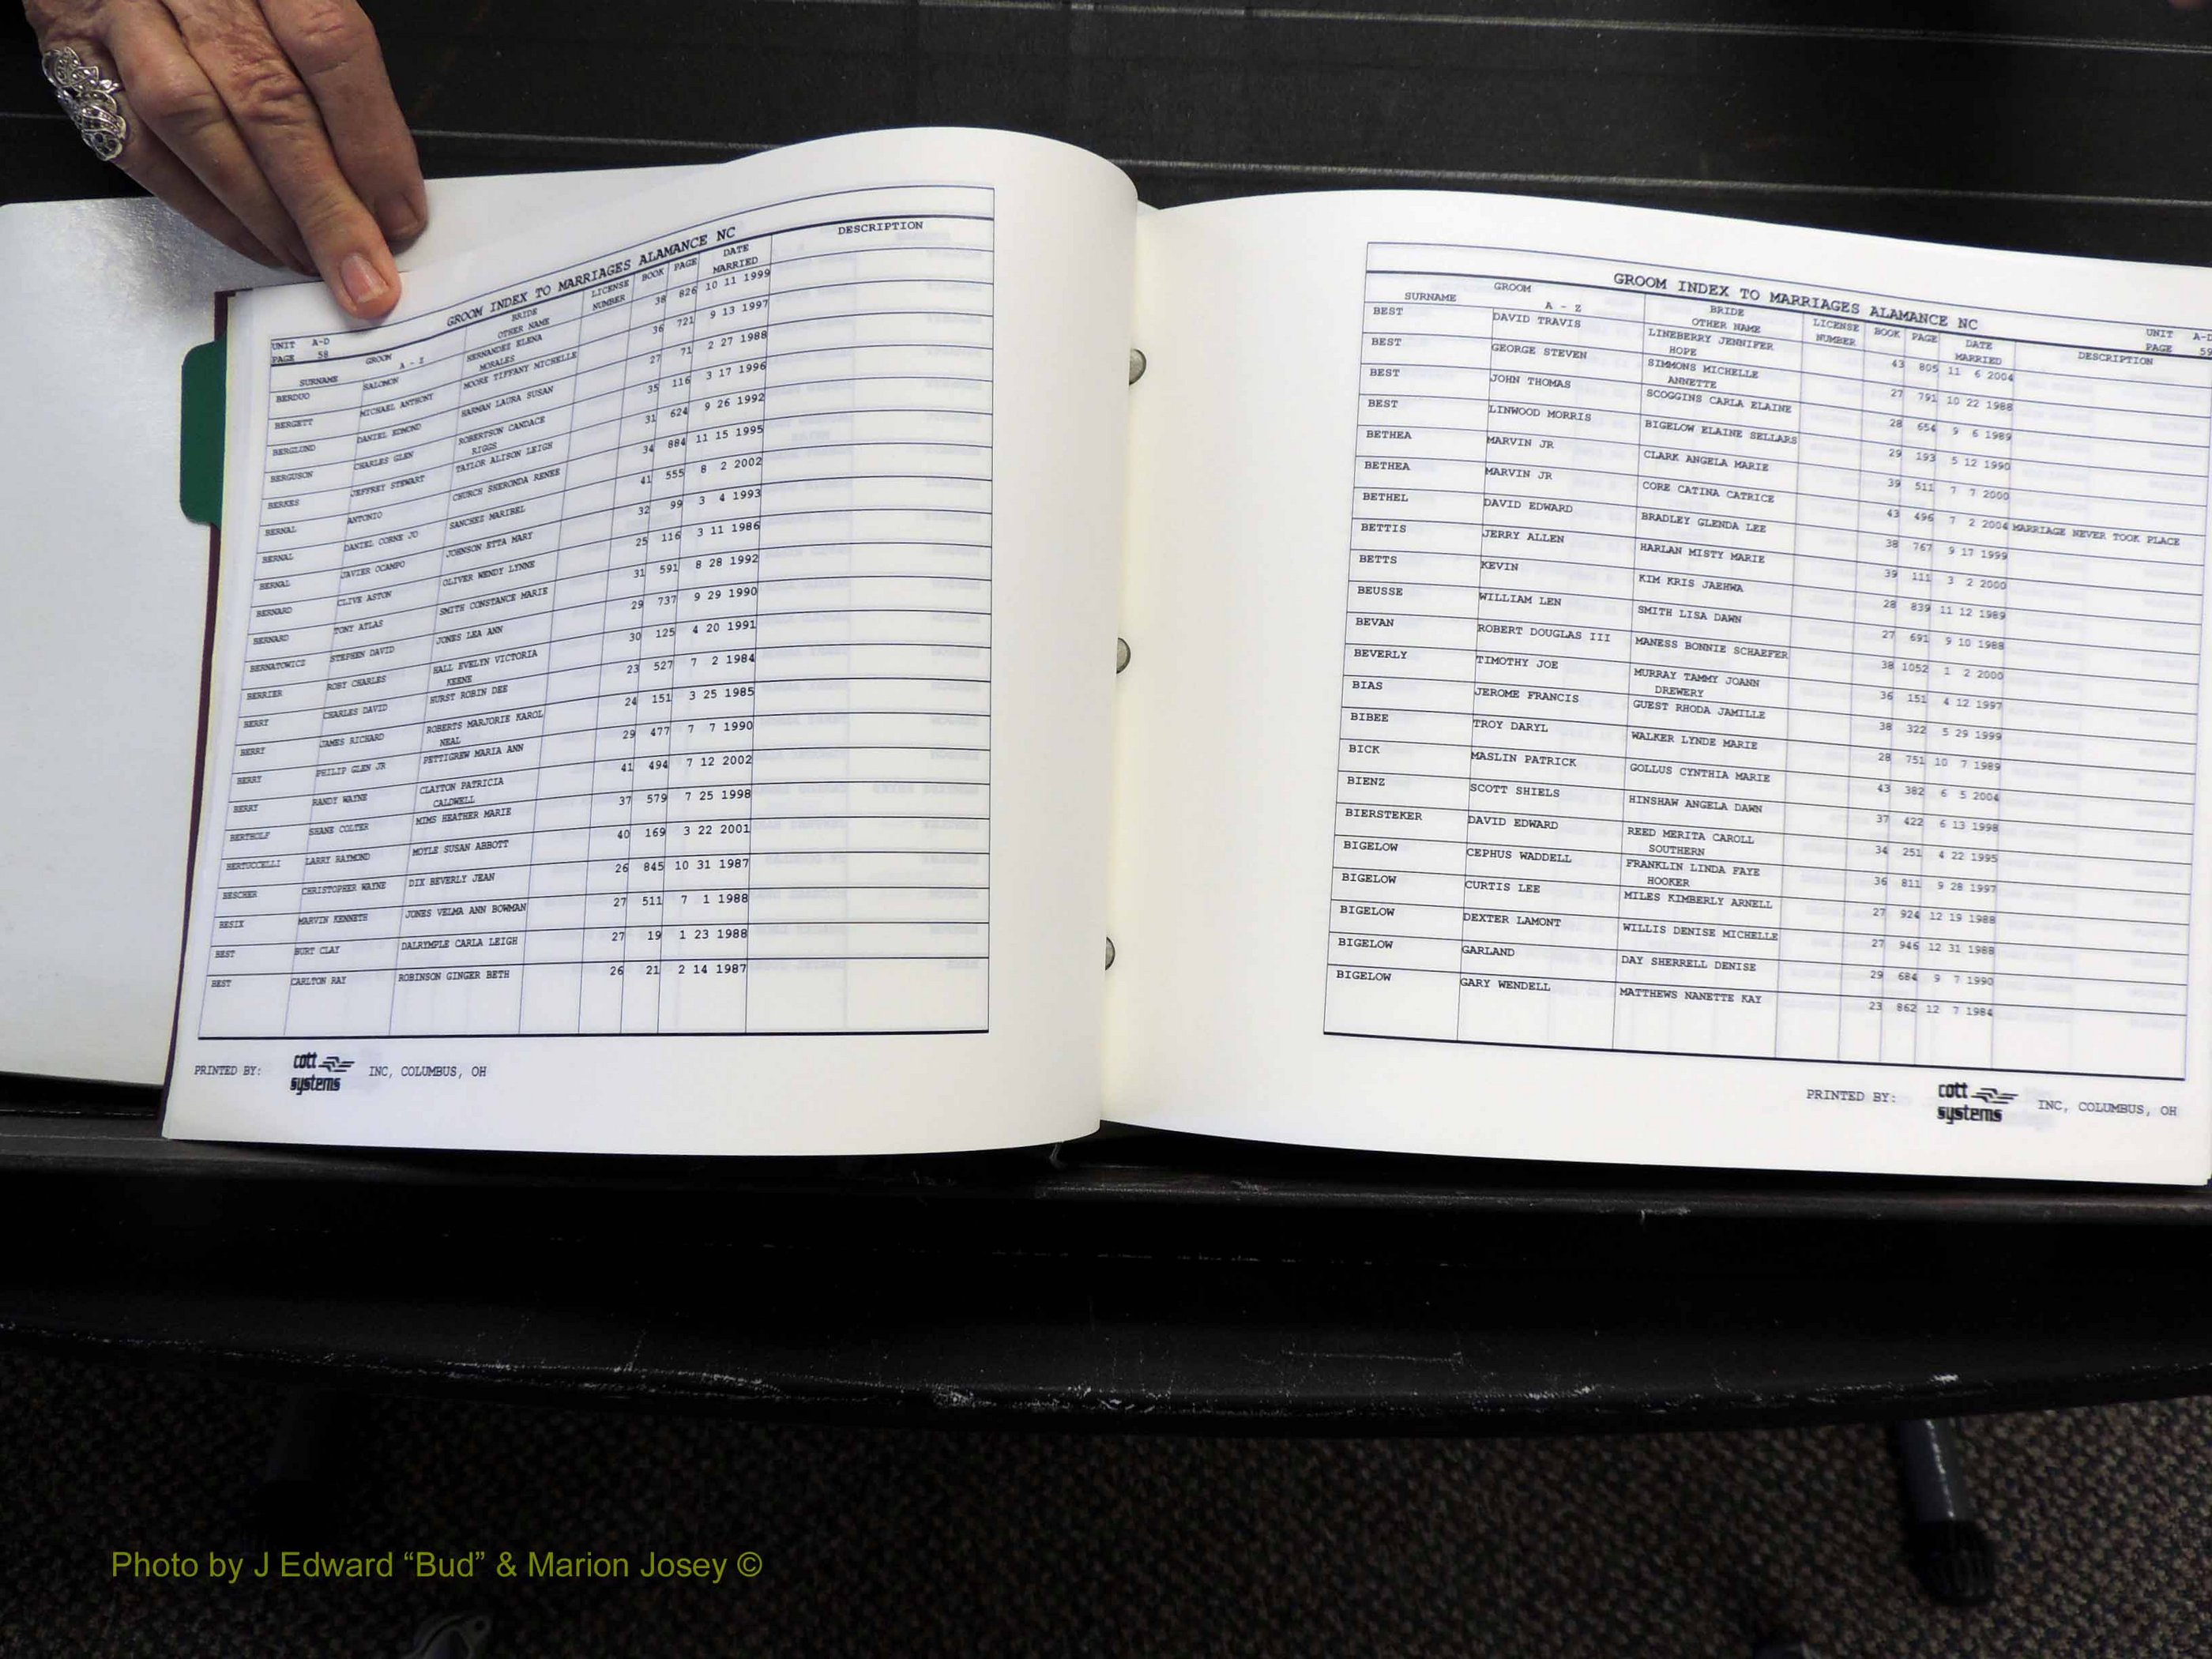 UNIT A-D
PAGE 58
GROOM INDEX TO MARRIAGES ALAMANCE NC
SURNAME GROOM A - Z BRIDE OTHER NAME LICENSE NUMBER BOOK PAGE DATE MARRIED DESCRIPTION
BERDUO SALOMON HERNANDEZ ELENA 38 826 10 11 1999
MORALES
BERGETT MICHAEL ANTHONY MOORE TIFFANY MICHELLE 36 721 9 13 1997
BERGLUND DANIEL EDMOND HARMAN LAURA SUSAN 27 71 2 27 1988
BERGUSON CHARLES GLEN ROBERTSON CANDACE 35 116 3 17 1996
RIGGS
BERKES JEFFREY STEWART TAYLOR ALISON LEIGH 31 624 9 26 1992
BERNAL ANTONIO CHURCH SHERONDA RENEE 34 884 11 15 1995
BERNAL DANIEL CORNE JO SANCHEZ MARIBEL 41 555 8 2 2002
BERNAL JAVIER OCAMPO JOHNSON ETTA MARY 32 99 3 4 1993
BERNARD CLIVE ASTON OLIVER WENDY LYNNE 25 116 3 11 1986
BERNARD TONY ATLAS SMITH CONSTANCE MARIE 31 591 8 28 1992
BERNATOWICZ STEPHEN DAVID JONES LEA ANN 29 737 9 29 1990
BERRIER ROBY CHARLES HALL EVELYN VICTORIA 30 125 4 20 1991
KEENE
BERRY CHARLES DAVID HURST ROBIN DEE 23 527 7 2 1984
BERRY JAMES RICHARD ROBERTS MARJORIE KAROL 24 151 3 25 1985
NEAL
BERRY PHILIP GLEN JR PETTIGREW MARIA ANN 29 477 7 7 1990
BERRY RANDY WAYNE CLAYTON PATRICIA 41 494 7 12 2002
CALDWELL
BERTHOLF SHANE COLTER MIMS HEATHER MARIE 37 579 7 25 1998
BERTUCCELLI LARRY RAYMOND MOYLE SUSAN ABBOTT 40 169 3 22 2001
BESCHER CHRISTOPHER WAYNE DIX BEVERLY JEAN 26 845 10 31 1987
BESIX MARVIN KENNETH JONES VELMA ANN BOWMAN 27 511 7 1 1988
BEST BURT CLAY DALRYMPLE CARLA LEIGH 27 19 1 23 1988
BEST CARLTON RAY ROBINSON GINGER BETH 26 21 2 14 1987
PRINTED BY: cott systems INC, COLUMBUS, OH
GROOM INDEX TO MARRIAGES ALAMANCE NC
UNIT A-D
PAGE 59
SURNAME GROOM A - Z BRIDE OTHER NAME LICENSE NUMBER BOOK PAGE DATE MARRIED DESCRIPTION
BEST DAVID TRAVIS LINEBERRY JENNIFER 43 805 11 6 2004
HOPE
BEST GEORGE STEVEN SIMMONS MICHELLE 27 791 10 22 1988
ANNETTE
BEST JOHN THOMAS SCOGGINS CARLA ELAINE 28 654 9 6 1989
BEST LINWOOD MORRIS BIGELOW ELAINE SELLARS 29 193 5 12 1990
BETHEA MARVIN JR CLARK ANGELA MARIE 39 511 7 7 2000
BETHEA MARVIN JR CORE CATINA CATRICE 43 496 7 2 2004 MARRIAGE NEVER TOOK PLACE
BETHEL DAVID EDWARD BRADLEY GLENDA LEE 38 767 9 17 1999
BETTIS JERRY ALLEN HARLAN MISTY MARIE 39 111 3 2 2000
BETTS KEVIN KIM KRIS JAEHWA 28 839 11 12 1989
BEUSSE WILLIAM LEN SMITH LISA DAWN 27 691 9 10 1988
BEVAN ROBERT DOUGLAS III MANESS BONNIE SCHAEFER 38 1052 1 2 2000
BEVERLY TIMOTHY JOE MURRAY TAMMY JOANN 36 151 4 12 1997
DREWERY
BIAS JEROME FRANCIS GUEST RHODA JAMILLE 38 322 5 29 1999
BIBEE TROY DARYL WALKER LYNDE MARIE 28 751 10 7 1989
BICK MASLIN PATRICK GOLLUS CYNTHIA MARIE 43 382 6 5 2004
BIENZ SCOTT SHIELS HINSHAW ANGELA DAWN 37 422 6 13 1998
BIERSTEKER DAVID EDWARD REED MERITA CAROLL 34 251 4 22 1995
SOUTHERN
BIGELOW CEPHUS WADDELL FRANKLIN LINDA FAYE 36 811 9 28 1997
HOOKER
BIGELOW CURTIS LEE MILES KIMBERLY ARNELL 27 924 12 19 1988
BIGELOW DEXTER LAMONT WILLIS DENISE MICHELLE 27 946 12 31 1988
BIGELOW GARLAND DAY SHERRELL DENISE 29 684 9 7 1990
BIGELOW GARY WENDELL MATTHEWS NANETTE KAY 23 862 12 7 1984
PRINTED BY: cott systems INC, COLUMBUS, OH
Photo by J Edward “Bud” & Marion Josey ©